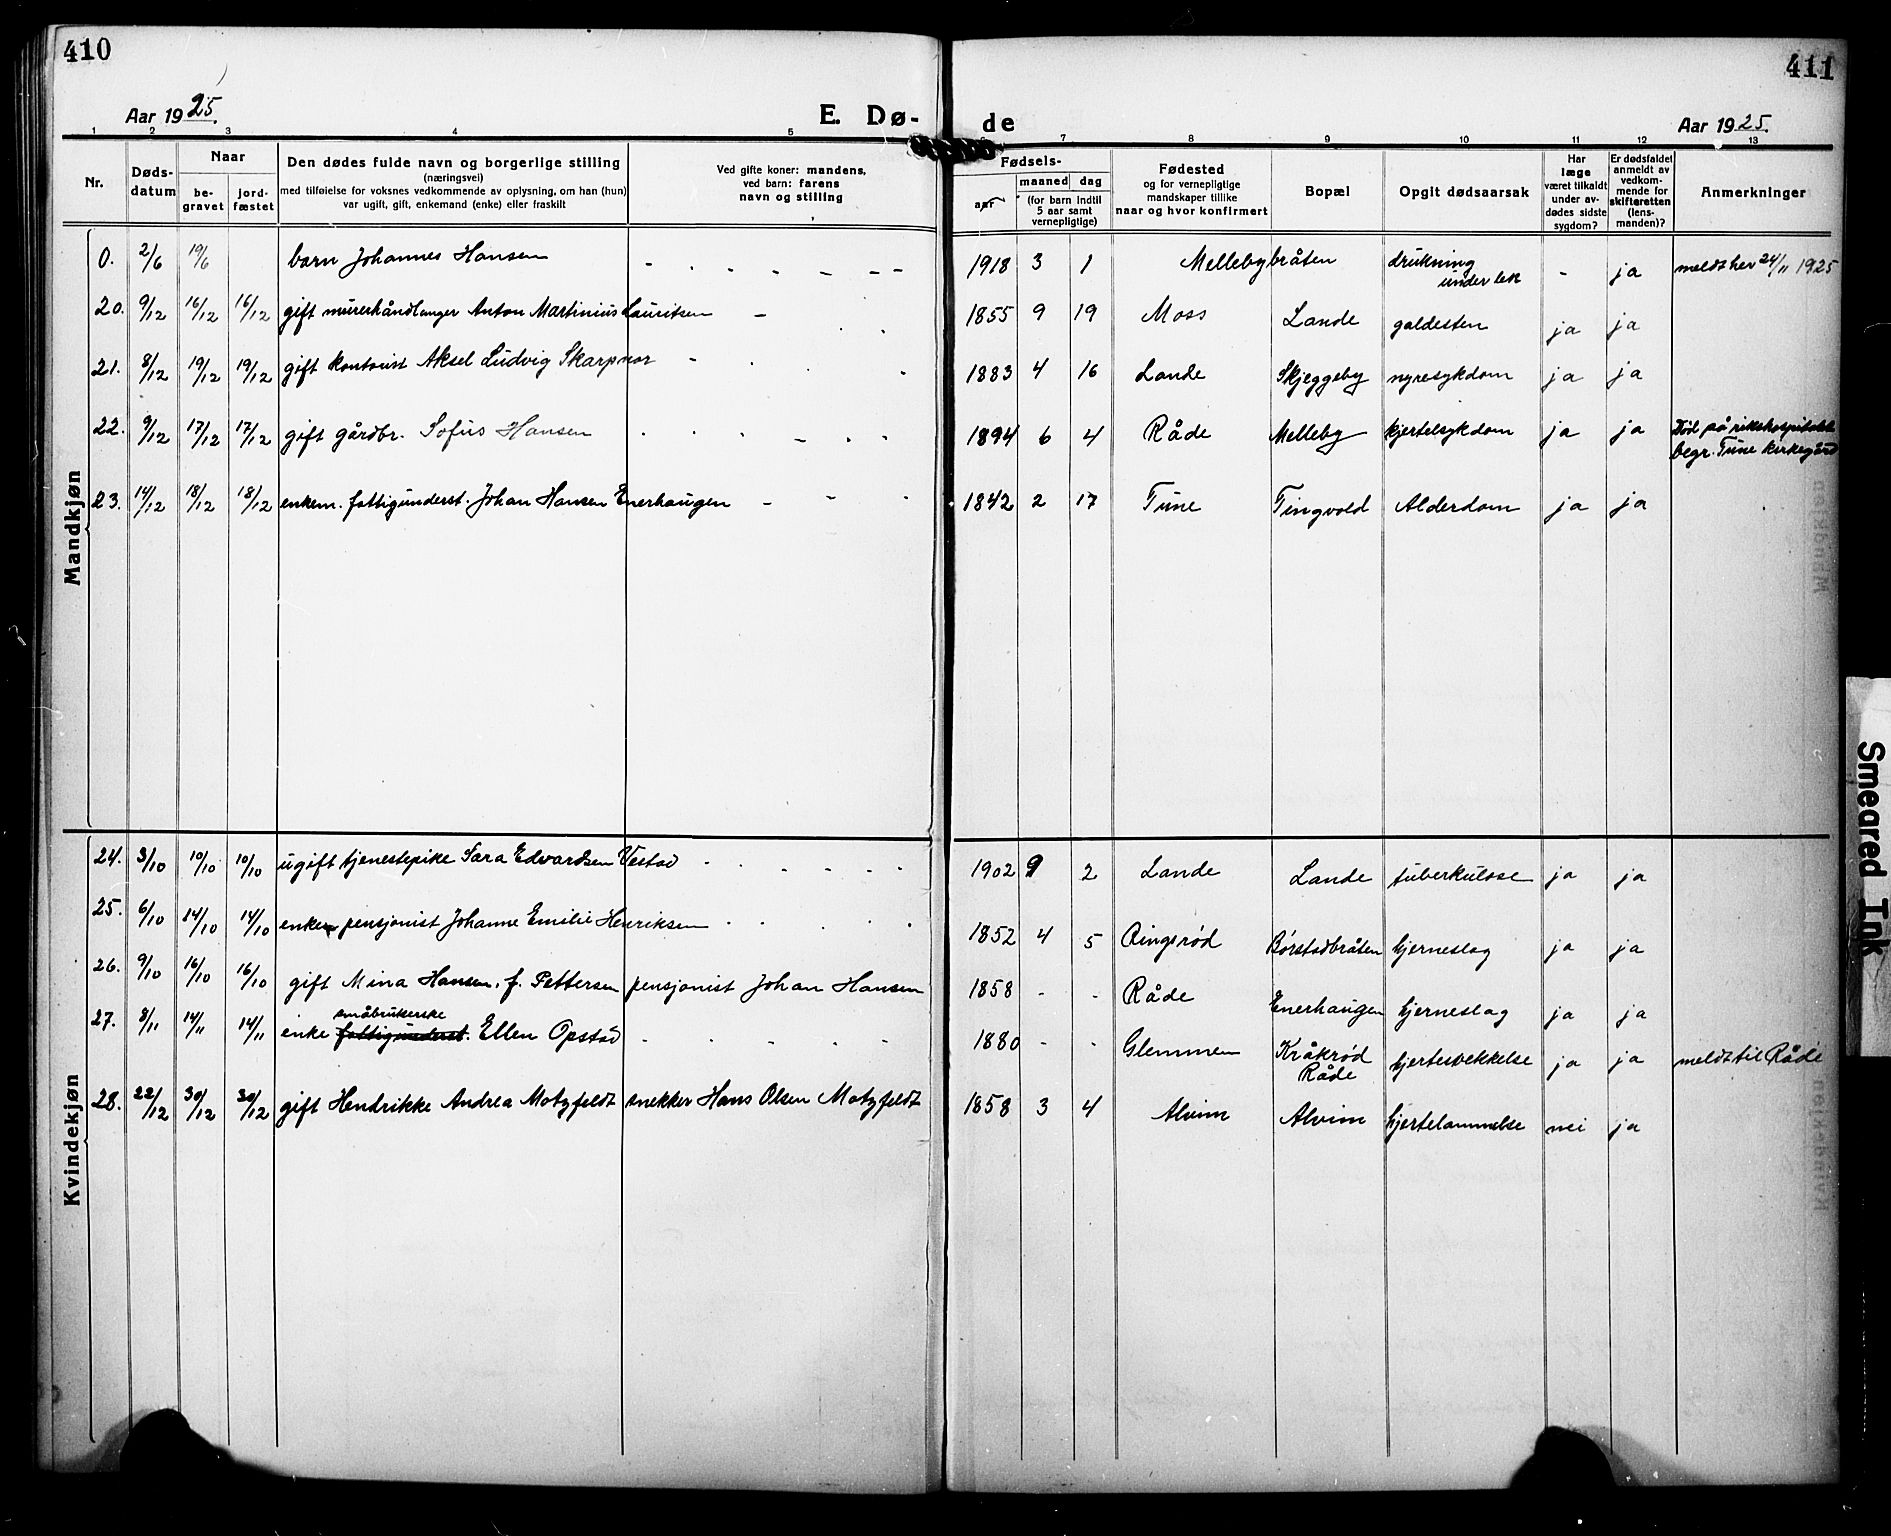 410
411
Aar 1925.
E. Dø-
de
Aar 1925.
1 2 3 4 5 7 8 9 10 11 12 13
Nr.
Døds-
datum
Naar
be-
gravet
jord-
fæstet
Den dødes fulde navn og borgerlige stilling
(næringsvei)
med tilføielse for voksnes vedkommende av oplysning, om han (hun)
var ugift, gift, enkemand (enke) eller fraskilt
Ved gifte koner: mandens,
ved barn: farens
navn og stilling
Fødsels-
aar
maaned dag
(for barn indtil
5 aar samt
vernepligtige)
Fødested
og for vernepligtige
mandskaper tillike
naar og hvor konfirmert
Bopæl
Opgit dødsaarsak
Har
læge
været tilkaldt
under av-
dødes sidste
sygdom?
Er dødsfaldet
anmeldt av
vedkom-
mende for
skifteretten
(lens-
manden)?
Anmerkninger
Mandkjøn
0. 2/6 19/6 barn Johannes Hansen - - - - - - - 1918 3 1 Mellebybråten drukning under lek - ja meldt her 24/11 1925
20. 9/12 16/12 16/12 gift murerhåndlanger Anton Martinius Lauritsen - - - 1855 9 19 Moss Lande galdesten ja ja
21. 8/12 19/12 19/12 gift kontorist Aksel Ludvig Skarpnor - - - 1883 4 16 Lande Skjeggeby nyresykdom ja ja
22. 9/12 17/12 17/12 gift gårdbr. Sofus Hansen - - - - - - 1894 6 4 Råde Melleby kjertelsykdom ja ja Død på rikshospitalet
begr. Tune kirkegård
23. 14/12 18/12 18/12 enkem. fattigunderst. Johan Hansen Enerhaugen - - - 1842 2 17 Tune Tingvold Alderdom ja ja
Kvindekjøn
24. 3/10 10/10 10/10 ugift tjenestepike Sara Edvardsen Vestad - - - - - - 1902 9 2 Lande Lande tuberkulose ja ja
25. 6/10 14/10 14/10 enke pensjonist Johanne Emilie Henriksen - - - - 1852 4 5 Ringsrød Børstadbråten hjerneslag ja ja
26. 9/10 16/10 16/10 gift Mina Hansen, f. Pettersen pensjonist Johan Hansen 1858 - - Råde Enerhaugen hjerneslag ja ja
småbrukerske
27. 8/11 14/11 14/11 enke fattigunderst. Ellen Opstad - - - - - 1880 - - Glemmen Kråkrød
Råde hjertesvekkelse ja ja meldt til Råde
28. 22/12 30/12 30/12 gift Hendrikke Andrea Motzfeldt snekker Hans Olsen Motzfeldt 1858 3 4 Alvim Alvim hjertelammelse nei ja
Smeared Ink